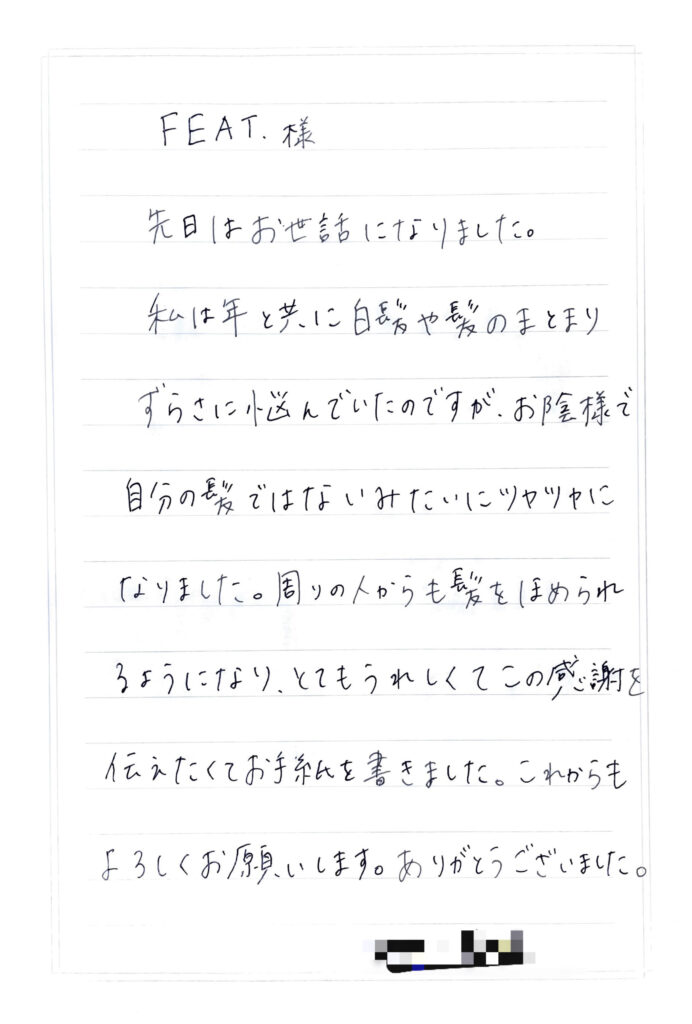 FEAT. 様
先日はお世話になりました。
私は年と共に白髪や髪のまとまり
ずらさに悩んでいたのですが、お陰様で
自分の髪ではないみたいにツヤツヤに
なりました。周りの人からも髪をほめられ
るようになり、とてもうれしくてこの感謝を
伝えたくてお手紙を書きました。これからも
よろしくお願いします。ありがとうございました。